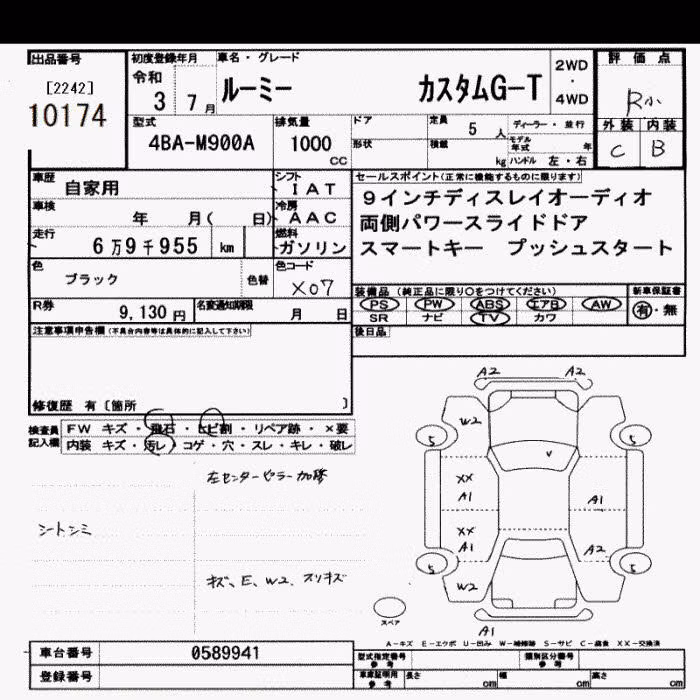 出品番号
[2242]
10174
初度登録年月
令和
3 7月
車名・グレード
ルーミー カスタムG-T
2WD
・
4WD
評価点
R小
外装 内装
C B
型式
4BA-M900A
排気量
1000
CC
ドア
形状
定員
5 人
積載
kg
ディーラー・並行
モデル年式 年
ハンドル 左・右
車歴
自家用
シフト
IAT
車検
年 月( 日)
冷房
AAC
走行
6万9千955 km
燃料
ガソリン
色
ブラック
色替
色コード
X07
R券
9,130円
名変通知期限
月 日
セールスポイント(正常に機能するものに限ります)
9インチディスレイオーディオ
両側パワースライドドア
スマートキー プッシュスタート
装備品(純正品に限り〇をつけてください)
PS PW ABS エアB AW
SR ナビ TV カワ
新車保証書
有・無
後日品
注意事項申告欄(不具合内容等は具体的に記入して下さい)
修復歴 有〔箇所 〕
検査員
記入欄
FW キズ・飛石・ヒビ割・リペア跡・×要
内装 キズ・汚レ・コゲ・穴・スレ・キレ・破レ
左センターピラー加修
シートシミ
キズ、E、W2、スリキズ
A2 A2
W2
5 5
V
XX
A1
A1
XX
A1
A2
5 5
W2
スペア
A1
A-キズ E-エクボ U-凹み W-補修跡 S-サビ C-腐食 XX-交換済
車台番号
0589941
登録番号
型式指定番号
参考
類別区分番号
参考
車庫証明用
参考
長さ cm
幅 cm
高さ cm